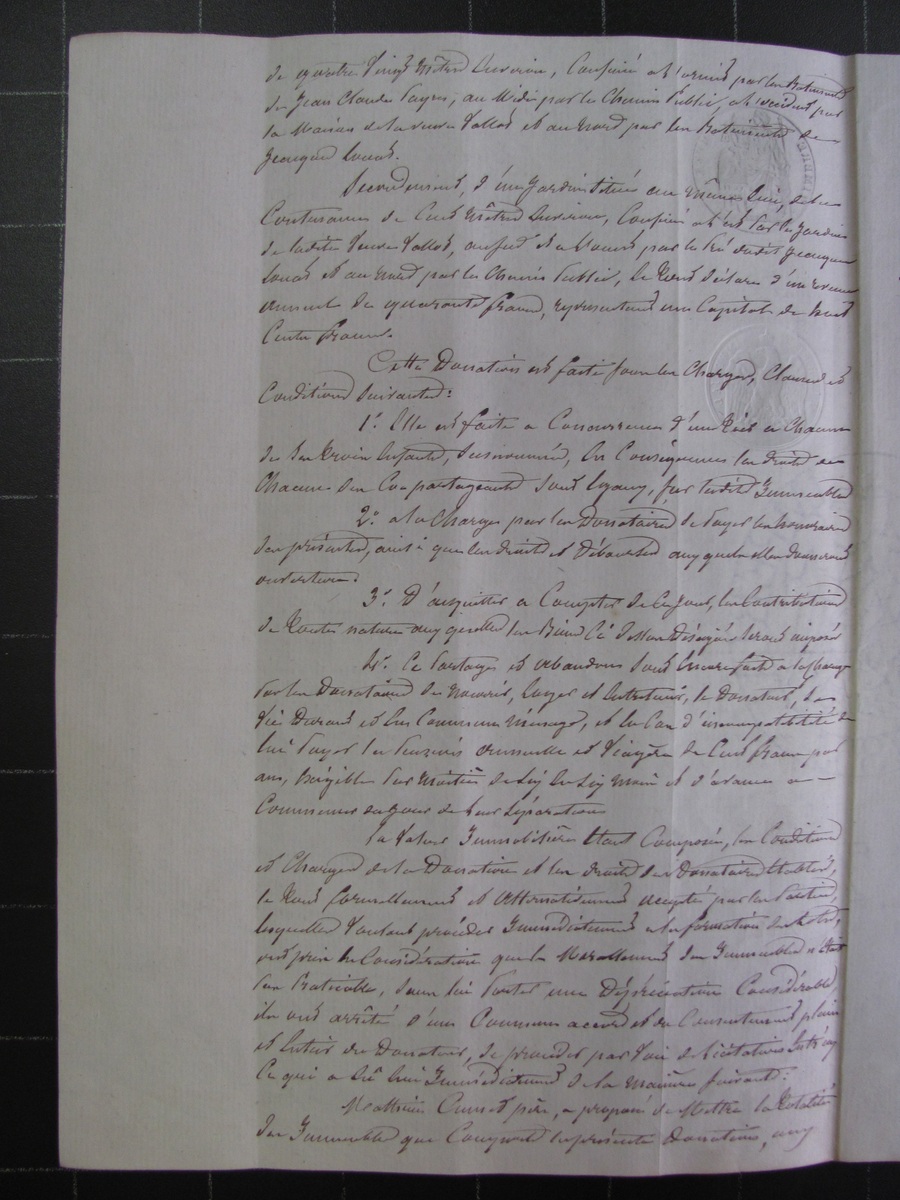 de quatre vingt mètres environ, Confiné à l'orient par les Batiments
de Jean Claude Payre, au Midi par le Chemin Public, à l'occident par
la Maison de la veuve Vallos et au nord par les Batiments de
Jacques
Secondement, d'un Jardin situé au même lieu, de la
Contenance de Cent mètres environ, Confiné à l'est par le Jardin
de ladite Veuve Vallos, au sud et à l'ouest par le Pré dudit Jacques
et au nord par le Chemin Public, le tout déclaré d'un revenu
annuel de quarante francs, représentant un Capital de huit
Cents francs.
Cette Donation est faite sous les Charges, Clauses et
Conditions Suivantes:
1° Elle est faite à Concurrence d'un tiers à Chacun
de ses trois Enfants, susnommés, En Conséquence les droits de
Chacun des Co-partageants sont égaux, sur lesdits Immeubles
2° à la Charge par les Donataires de Payer les honoraires
des présentes, ainsi que les droits et Déboursés auxquels elles donneront
ouverture.
3° D'acquitter à Compter de Ce Jour, les Contributions
de toutes natures auxquelles les Biens Ci dessus Désignés seront imposés
4° Ce Partage et abandon sont Encore faits à la Charge
Par les Donataires de Nourrir, Loger et Entretenir, le Donateur, sa
Vie Durant et En Commun Ménage, et En Cas d'incompatibilité de
lui Payer la Pension annuelle et Viagère de Cent francs par
an, Exigible Par moitié de Six En Six Mois et d'avance à
Commencer du Jour de leur Séparation
La Valeur Immobilière Etant Composée, les Conditions
et Charges de la Donation et les droits des Donataires Etablis,
le tout formellement et acceptés par les Parties,
lesquelles Voulant procéder Immédiatement à la formation des Lots,
ont pris En Considération que le Morcellement des Immeubles n'était
Pas Praticable, sans lui Porter une Dépréciation Considérable,
ils ont arrêté d'un Commun accord et du Consentement plein
et Entier du Donateur, de procéder par Voie de licitation Entr'eux
Ce qui a été fait Immédiatement de la manière suivante:
Mathieu père, a proposé de Mettre la totalité
des Immeubles que Comprend la présente Donation, aux